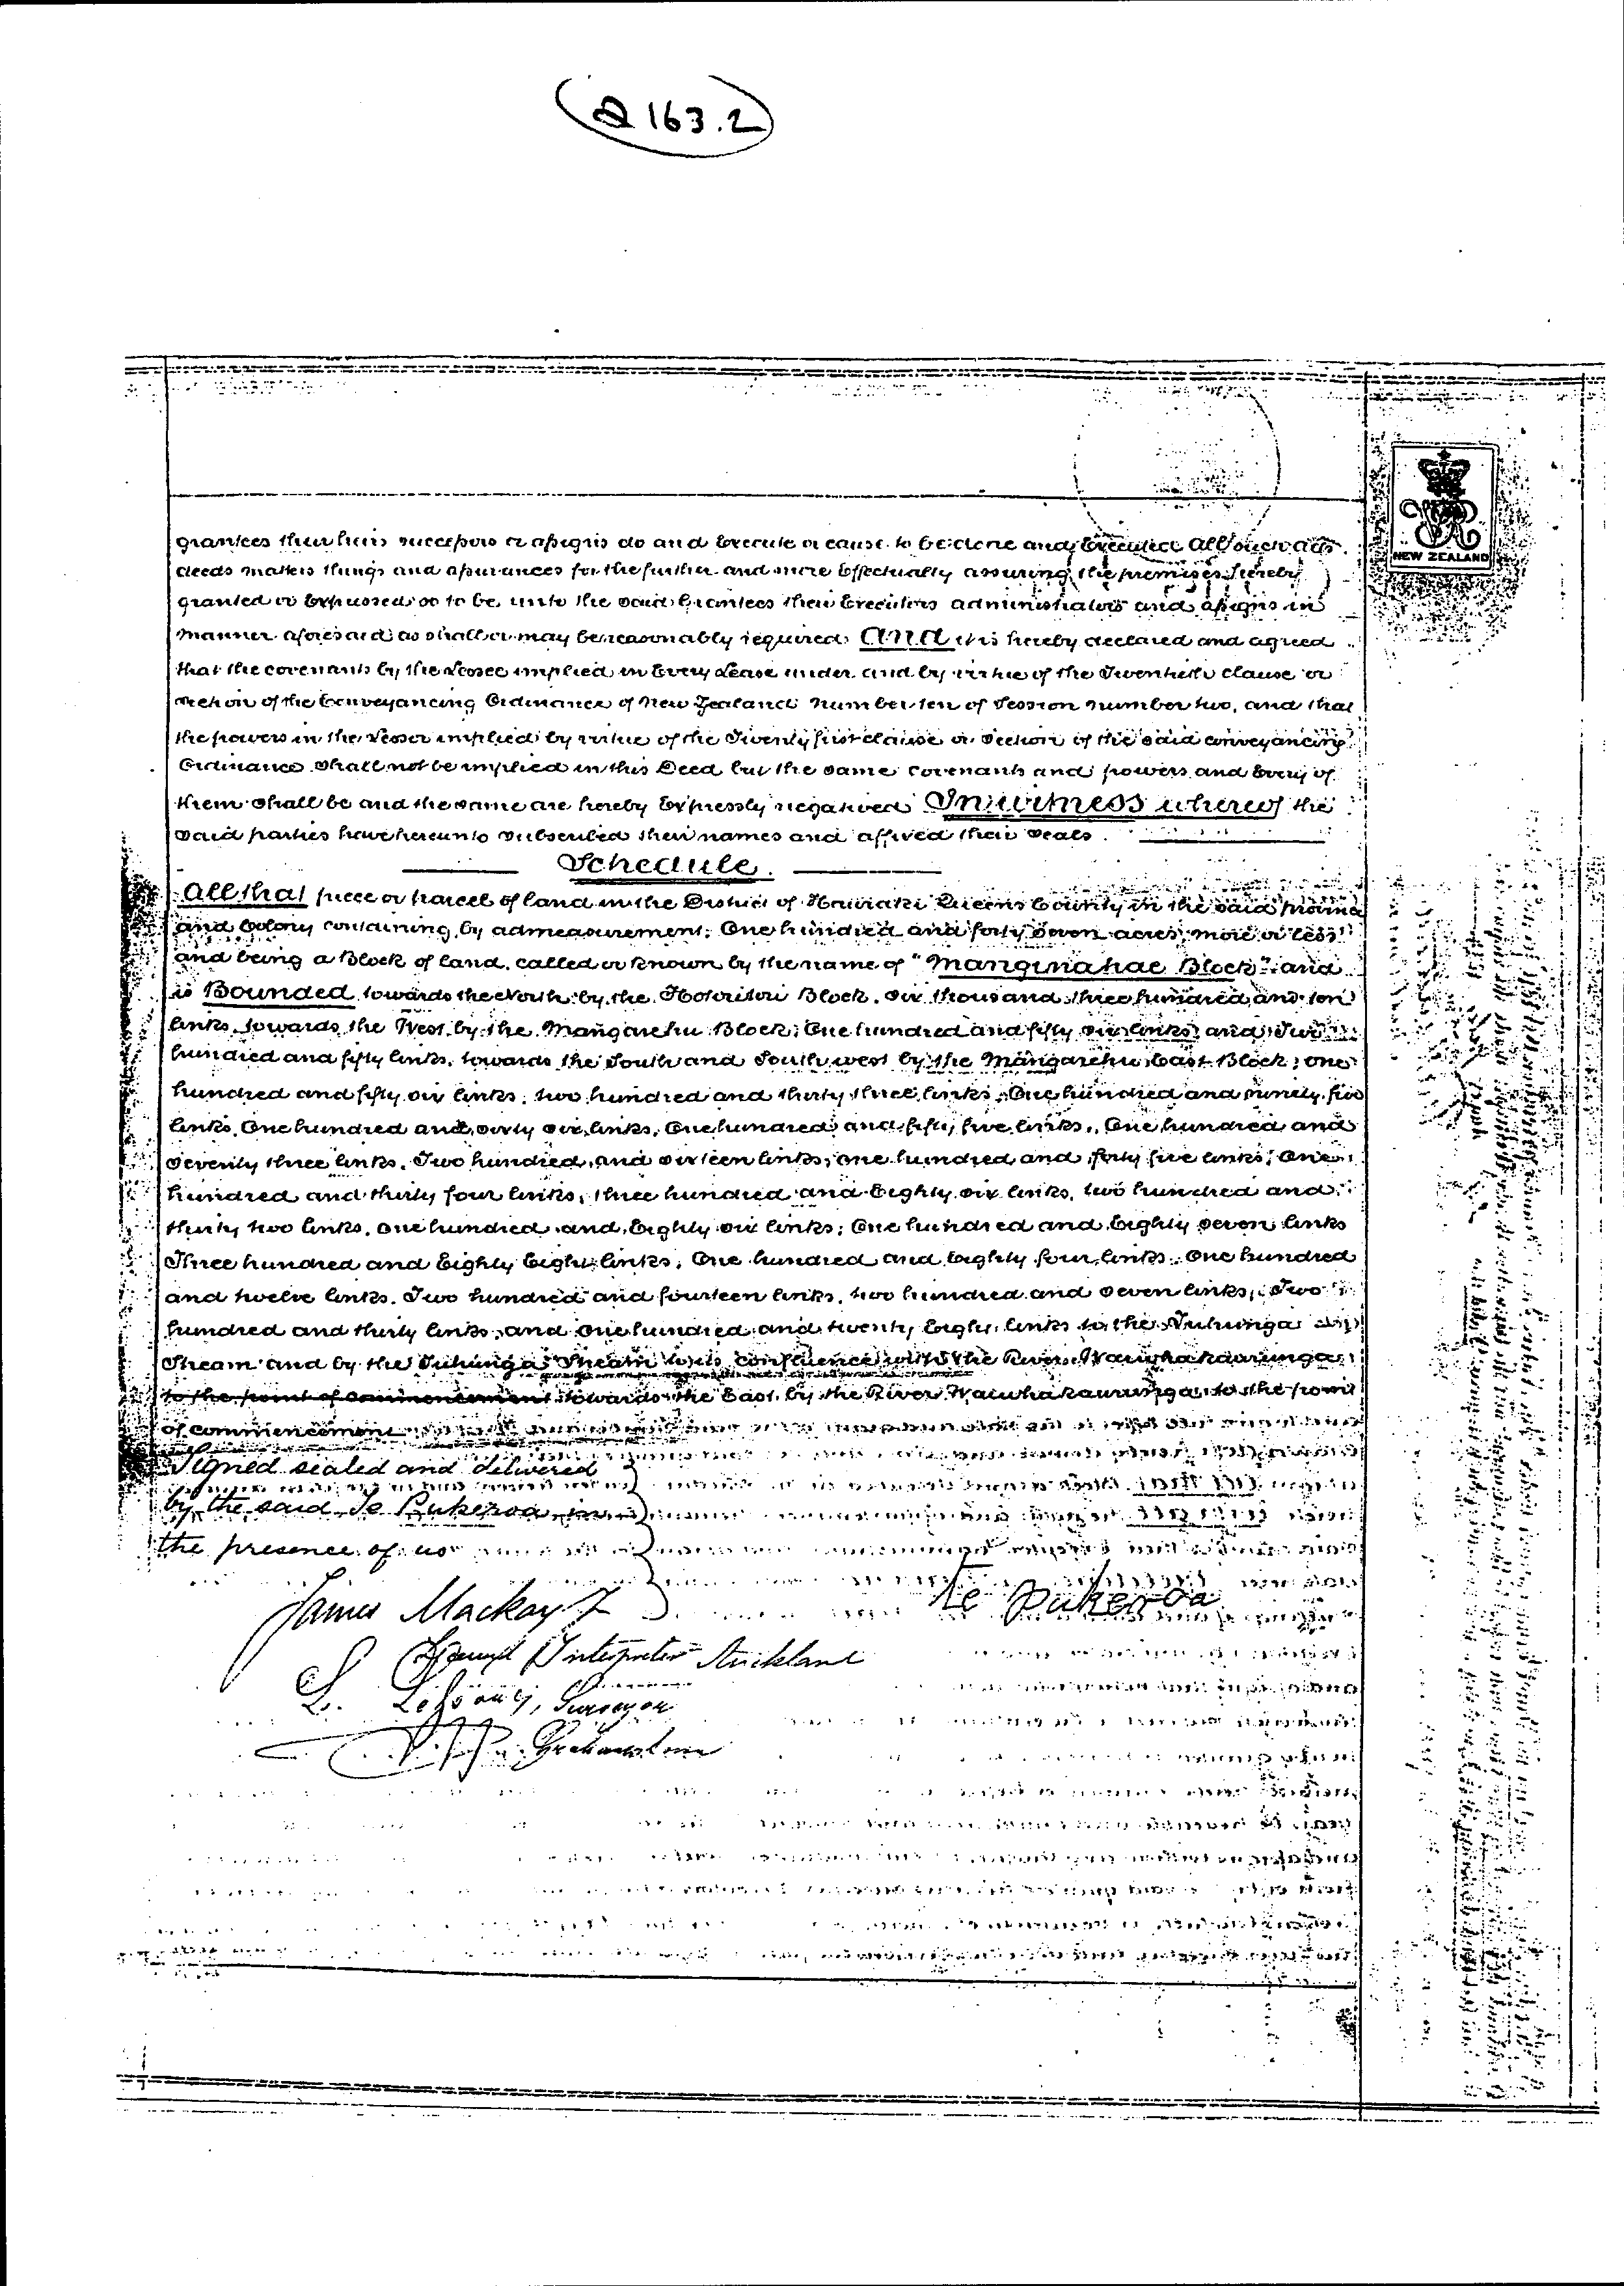 Q 163.2
NEW ZEALAND
grantees their heirs successors or assigns do and execute or cause to be done and executed all such acts
deeds matters things and assurances for the further and more effectually assuring the premises hereby
granted or expressed so to be unto the said Grantees their Executors administrators and assigns in
manner aforesaid as shall or may be reasonably required And it is hereby declared and agreed
that the covenants by the Lessee implied in Every Lease under and by virtue of the Twentieth clause or
section of the Conveyancing Ordinance of New Zealand number ten of Session number two, and that
the powers in the Lessor implied by virtue of the Twenty first clause or Section of the said conveyancing
Ordinance shall not be implied in this Deed but the same covenants and powers and Every of
them shall be and the same are hereby Expressly negatived In witness whereof the
said parties have hereunto subscribed their names and affixed their seals.
Schedule.
All that piece or parcel of land in the District of Hauraki Queens County in the said
and Colony containing by admeasurement One hundred and forty seven acres, more or less
and being a Block of land called or known by the name of "Manginahae Block" and
is Bounded towards the North by the Block, six thousand three hundred and ten
links, towards the West by the Mangarehu Block; One hundred and fifty six links, and Two
hundred and fifty links, towards the South and South west by the Mangarehu East Block; one
hundred and fifty six links, two hundred and thirty three links, One hundred and ninety five
links, One hundred and sixty six links, One hundred and fifty five links, One hundred and
seventy three links, Two hundred and sixteen links, one hundred and forty five links, One
hundred and thirty four links, three hundred and Eighty six links, two hundred and
thirty two links, one hundred and Eighty six links; One hundred and Eighty seven links
Three hundred and Eighty Eight links, One hundred and Eighty four links, One hundred
and twelve links, Two hundred and fourteen links, two hundred and seven links, Two
hundred and thirty links, and One hundred and twenty Eight links to the Tuhunga
Stream and by the Tuhunga Stream to its confluence with the River Waiwhakaurunga
to the point of commencement towards the East by the River Waiwhakaurunga to the point
of commencement
Signed sealed and delivered
by the said Te Pukeroa in
the presence of us
James Mackay Jr
Te Pukeroa
Interpreter Auckland
Surveyor
Grahamstown